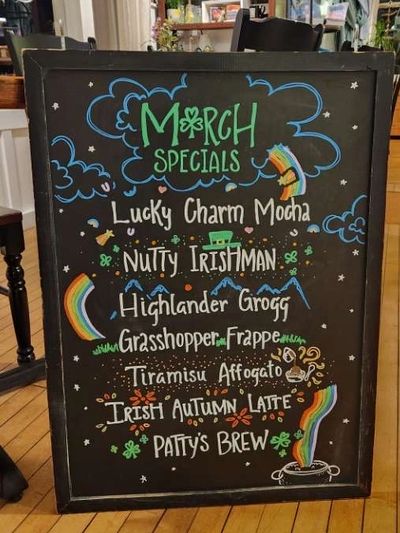 MARCH
SPECIALS
Lucky Charm Mocha
NUTTY IRISHMAN
Highlander Grogg
Grasshopper Frappe
Tiramisu Affogato
IRISH AUTUMN LATTE
PATTY'S BREW